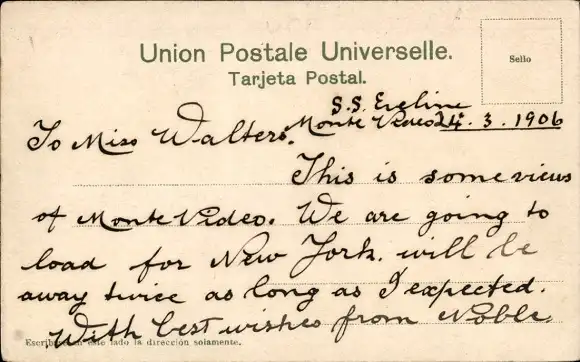 Union Postale Universelle.
Tarjeta Postal.
Sello
S.S. Eveline
Monte Video 24.3.1906
To Miss Walters.
This is some views
of Monte Video. We are going to
load for New York. will be
away twice as long as I expected.
With best wishes from Noble
Escriba en este lado la dirección solamente.